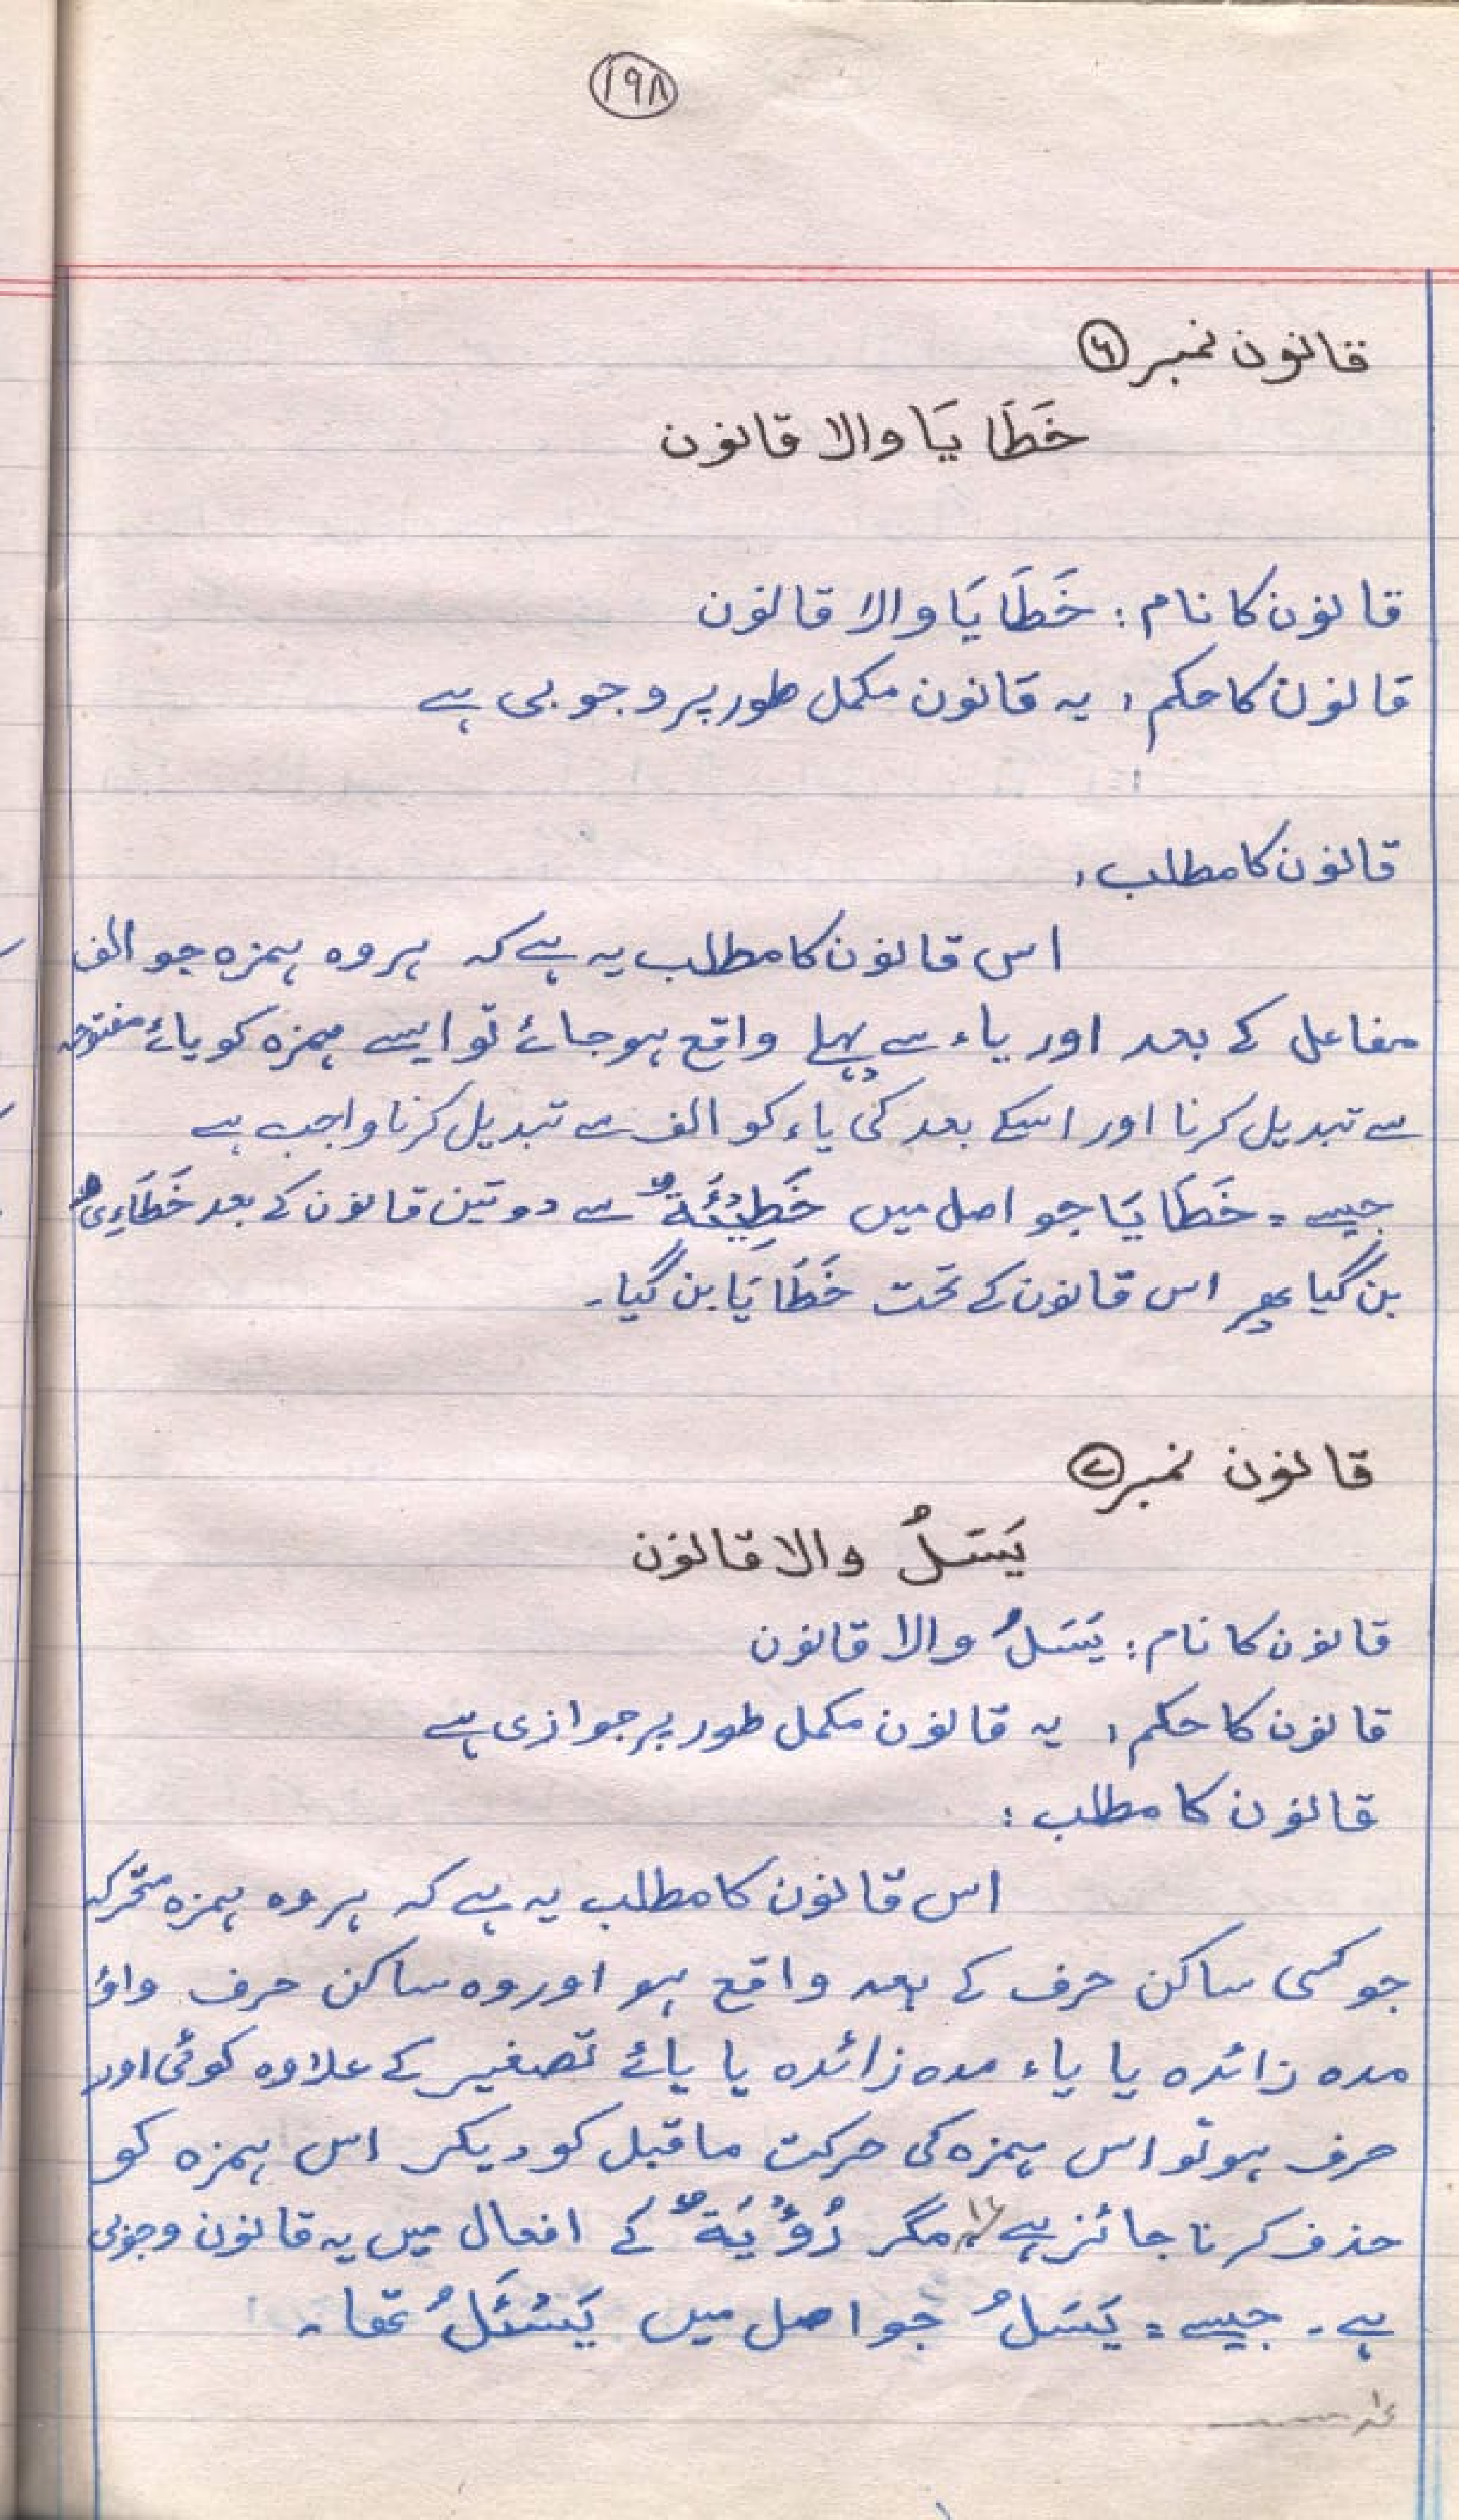 ۱۹۸
قانون نمبر ۶
خَطَايَا والا قانون
قانون کا نام : خَطَايَا والا قانون
قانون کا حکم : یہ قانون مکمل طور پر وجوبی ہے
قانون کا مطلب :
اس قانون کا مطلب یہ ہے کہ ہر وہ ہمزہ جو الف
مفاعل کے بعد اور یاء سے پہلے واقع ہو جائے تو ایسے ہمزہ کو یائے مفتوحہ
سے تبدیل کرنا اور اسکے بعد کی یاء کو الف سے تبدیل کرنا واجب ہے
جیسے = خَطَايَا جو اصل میں خَطِيْئَةٌ سے دو تین قانون کے بعد خَطَاءِىُ
بن گیا پھر اس قانون کے تحت خَطَايَا بن گیا۔
قانون نمبر ۷
يَسَلُ والا قانون
قانون کا نام : يَسَلُ والا قانون
قانون کا حکم : یہ قانون مکمل طور پر جوازی ہے
قانون کا مطلب :
اس قانون کا مطلب یہ ہے کہ ہر وہ ہمزہ متحرکہ
جو کسی ساکن حرف کے بعد واقع ہو اور وہ ساکن حرف واؤ
مدہ زائدہ یا یاء مدہ زائدہ یا یائے تصغیر کے علاوہ کوئی اور
حرف ہو تو اس ہمزہ کی حرکت ماقبل کو دیکر اس ہمزہ کو
حذف کرنا جائز ہے مگر رُؤْيَةٌ کے افعال میں یہ قانون وجوبی
ہے۔ جیسے = يَسَلُ جو اصل میں يَسْئَلُ تھا۔